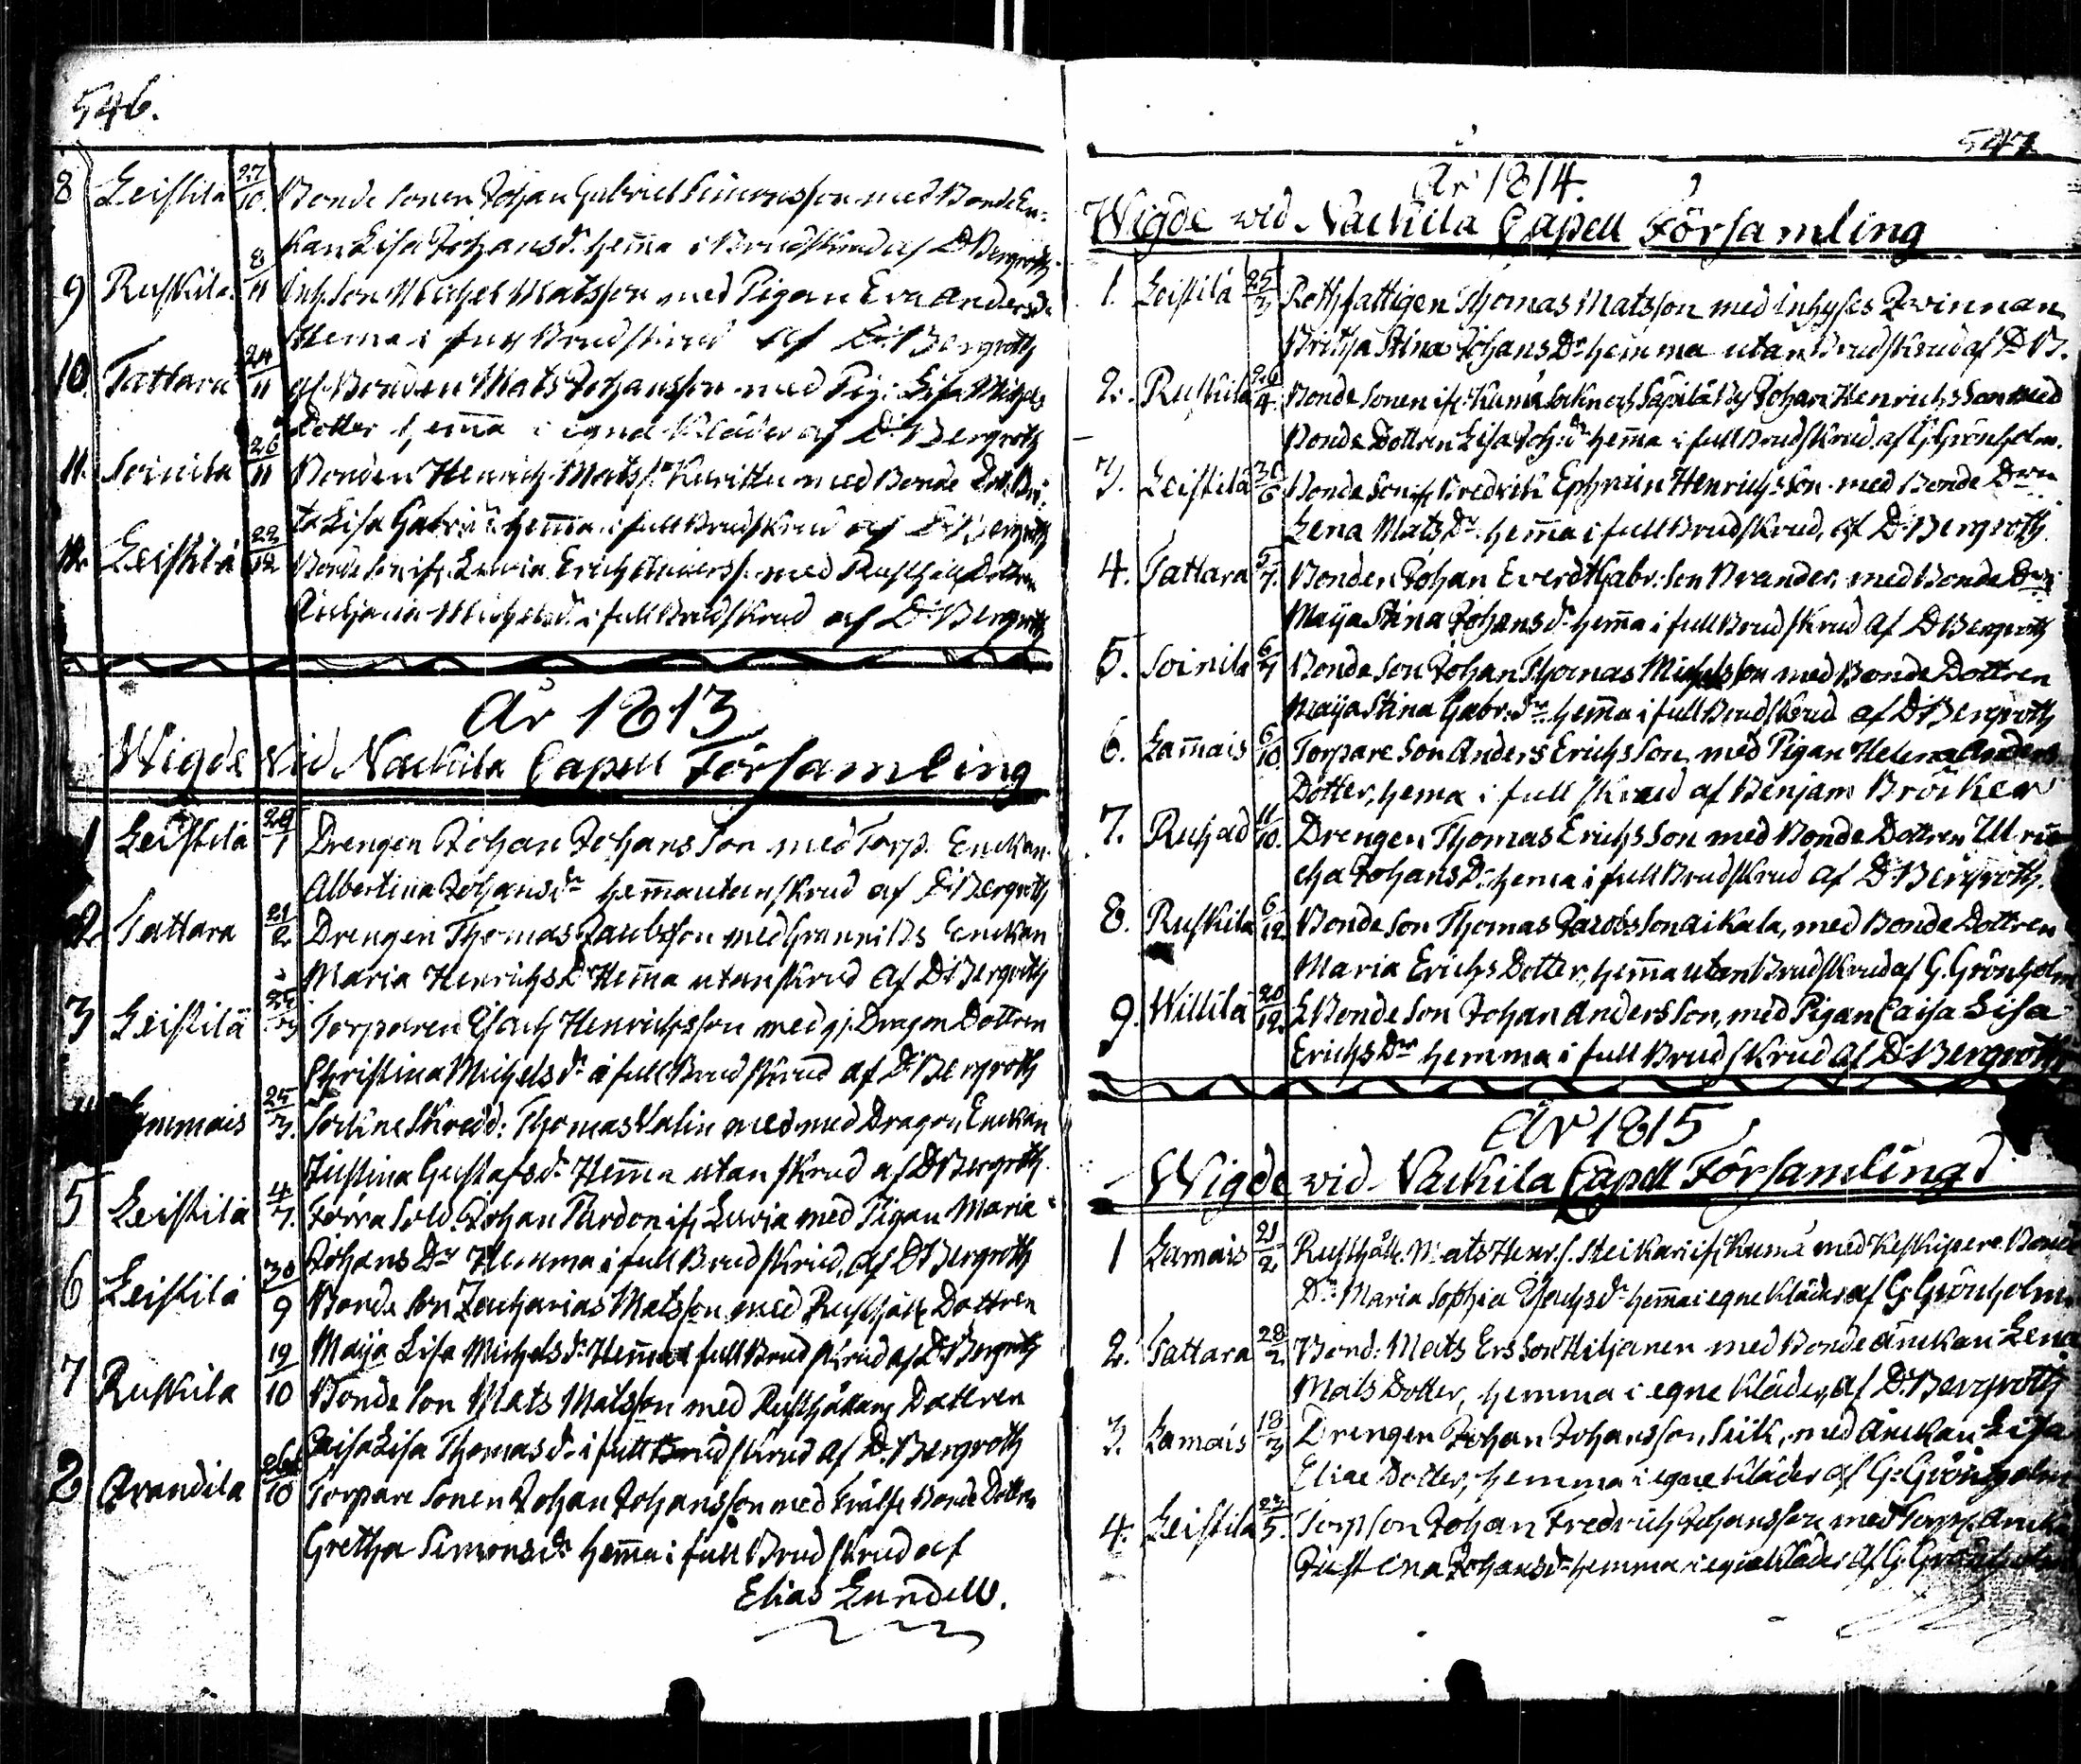 546.
8 Leistila 27/10. Bonde Sonen Johan Gabriel Simonsson med Bonde En-
kan Lisa Johansdr hem̄a i Brudskrud af D Bergroth
9 Ruskila 8/11 Inh. Son Michel Matsson med Pigan Eva Andersdr
Hema i full Brudskrud af D: Bergroth
10. Tattara 24/11 Bonden Mats Johansson med Pig: Lisa Michels
Dotter hem̄a i egna Kläder af D: Bergroth
11. Soinila 26/11 Bonden Henrich Matss. med Bonde Dott. Bri-
ta Lisa Gabr: dr hem̄a i full Brudskrud af D Bergroth
12 Leistila 22/12 Bonde Son ifr. Luvia Erich med Rusthålls Dottren
Michelsdr i full Brudskrud af D: Bergroth
År 1813
Wigde vid Nackila Capell Församling
1 Leistila 28/1 Drengen Johan Johansson med Torp. Enckan
Albertina Johansdr hem̄a utan skrud af D: Bergroth
2. Tattara 21/2 Drengen Thomas Jacobsson med Enckan
Maria Henrichs Dr Hem̄a utan skrud af D: Bergroth
3 Leistilä 25/3 Torparen Esach Henrichsson med gl. Dragon Dottren
Christina Michels dr i full Brudskrud af D: Bergroth
Lammais 25/3. Sockne Skredd: Thomas Valin med med Dragon Enckan
Justina Gustafsdr Hem̄a utan skrud af D Bergroth
5 Leistila 4/7. Förra Sold. Johan Pardon ifr Luvia med Pigan Maria
Johans Dr Hemma i full Brudskrud, af D Bergroth
6 Leistila 30/9 Bonde Son Zacharias Matsson med Rusthåll. Dottren
Maija Lisa Michels dr Hem̄a i full Brudskrud af D Bergroth
7 Ruskila 19/10 Bonde Son Mats Matsson med Rusthållar Dottren
Caisa Lisa Thomas dr i full Brudskrud af D. Bergroth
8 Arandila 26/10 Torpare Sonen Johan Johansson med Bonde Dottren
Gretha Simonsdr hem̄a i full Brudskrud af
Elias Lundell.
547
År 1814.
Wigde wid Nackila Capell Församling
1. Leistila 25/3 Rothfattigen Thomas Matsson med Inhyses Qvinnan
Britha Stina Johans Dr hemma utan Brudskrud af D B.
2. Ruskila 26/4. Bonde Sonen ifr. Kumå Sockn och Säpilä By Johan Henrichs Son med
Bonde Dottren Lisa Joh: dr hem̄a i full Brudskrud. af G. Grönholm.
3. Leistilä 30/6 Bonde Son Ephraim Henrichs Son med Bonde Dren
Lena Mats Dr hem̄a i full Brudskrud, af D Bergroth.
4. Tattara 5/7. Bonden Johan Everdt Gabr: Son Brander, med Bonde Dren
Maija Stina Johans dr hem̄a i full Brudskrud af D Bergroth
5. Soinila 6/7 Bonde Son Johan Thomas Michelsson med Bonde Dottren
Maija Stina Gabr: dr hem̄a i full Brudskrud af D Bergroth
6. Lam̄ais 6/10. Torpare Son Anders Erichs Son, med Pigan Helena Anders
Dotter, hema i full skrud af Benjam Bröcker
7. Ruhad 11/10. Drengen Thomas Erichs Son med Bonde Dottren Ulri-
cha Johans Dr hema i full Brudskrud af D Bergroth.
8. Ruskila 6/12 Bonde Son Thomas Jacobs Son Aikala, med Bonde Dottren
Maria Erichs Dotter, hem̄a utan Brudskrud af G. Grönholm
9. Willilä 20/12. Bonde Son Johan Anders Son, med Pigan Caisa Lisa
Erichs Dr hemma i full Brudskrud af D: Bergroth
År 1815
Wigde vid Nackila Capell Församling
1 Lamais 21/2 Rusthåll. Mats Henr. s. Steikari ifr Kumå med Bonde
Dr Maria Sophia Esachs dr hem̄a i egne Kläder af G Grönholm
2. Tattara 28/2 Bond: Mats Ers Son Hiljanen med Bonde Änckan Lena
Mats Dotter, hemma i egne Kläder, af D: Bergroth
3. Lamais 18/3 Drengen Johan Johansson Siik, med Änckan Lisa
Eliae Dotter, hemma i egne Kläder af G: Grönholm
4. Leistila 27/5. Torp Son Johan Fredrich Johansson med Torp. Änckan
Justina Johans dr hemma i egne Kläder af G. Grönholm